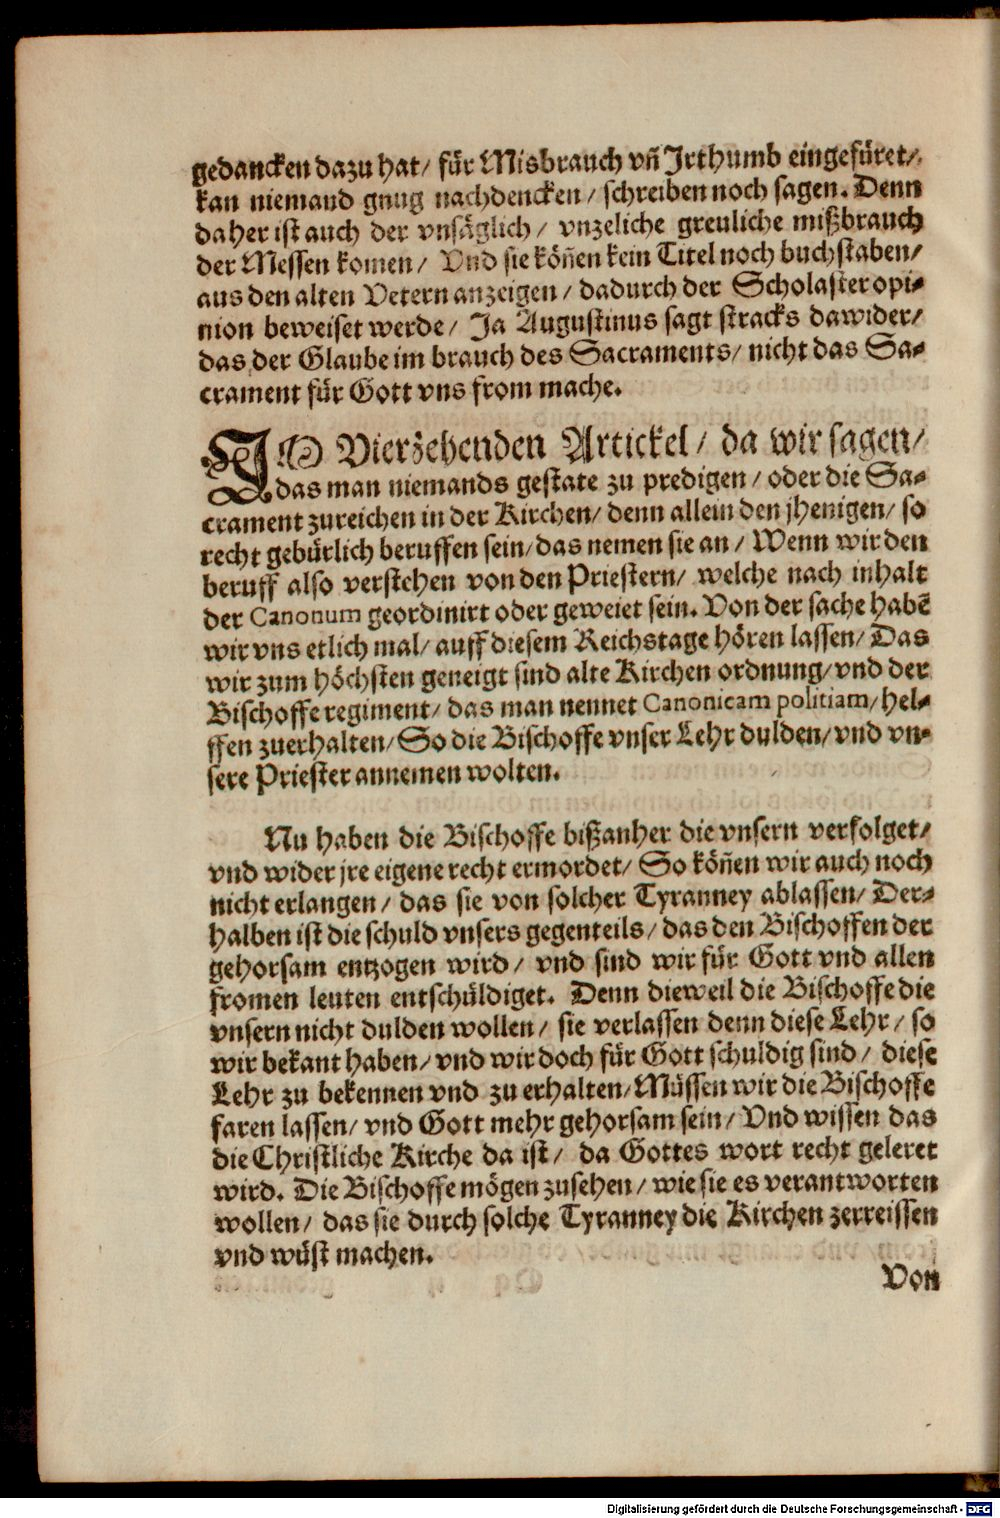 gedancken dazu hat/ für Misbrauch vn̄ Irthumb eingefüret/
kan niemand gnug nachdencken/ schreiben noch sagen. Denn
daher ist auch der vnsäglich/ vnzeliche greuliche mißbrauch
der Messen komen/ Vnd sie kön̄en kein Titel noch buchstaben/
aus den alten Vetern anzeigen/ dadurch der Scholaster opi⸗
nion beweiset werde/ Ja Augustinus sagt stracks dawider/
das der Glaube im brauch des Sacraments/ nicht das Sa⸗
crament für Gott vns from mache.
IM Vierzehenden Artickel/ da wir sagen/
das man niemands gestate zu predigen/ oder die Sa⸗
crament zureichen in der Kirchen/ denn allein den jhenigen/ so
recht gebürlich beruffen sein/ das nemen sie an/ Wenn wir den
beruff also verstehen von den Priestern/ welche nach inhalt
der Canonum geordinirt oder geweiet sein. Von der sache habē
wir vns etlich mal/ auff diesem Reichstage hören lassen/ Das
wir zum höchsten geneigt sind alte Kirchen ordnung/ vnd der
Bischoffe regiment/ das man nennet Canonicam politiam/ hel⸗
ffen zuerhalten/ So die Bischoffe vnser Lehr dulden/ vnd vn⸗
sere Priester annemen wolten.
Nu haben die Bischoffe bißanher die vnsern verfolget/
vnd wider jre eigene recht ermordet/ So kön̄en wir auch noch
nicht erlangen/ das sie von solcher Tyranney ablassen/ Der⸗
halben ist die schuld vnsers gegenteils/ das den Bischoffen der
gehorsam entzogen wird/ vnd sind wir für Gott vnd allen
fromen leuten entschüldiget. Denn dieweil die Bischoffe die
vnsern nicht dulden wollen/ sie verlassen denn diese Lehr/ so
wir bekant haben/ vnd wir doch für Gott schuldig sind/ diese
Lehr zu bekennen vnd zu erhalten/ Müssen wir die Bischoffe
faren lassen/ vnd Gott mehr gehorsam sein/ Vnd wissen das
die Christliche Kirche da ist/ da Gottes wort recht geleret
wird. Die Bischoffe mögen zusehen/ wie sie es verantworten
wollen/ das sie durch solche Tyranney die Kirchen zerreissen
vnd wüst machen.
Von
Digitalisierung gefördert durch die Deutsche Forschungsgemeinschaft - DFG